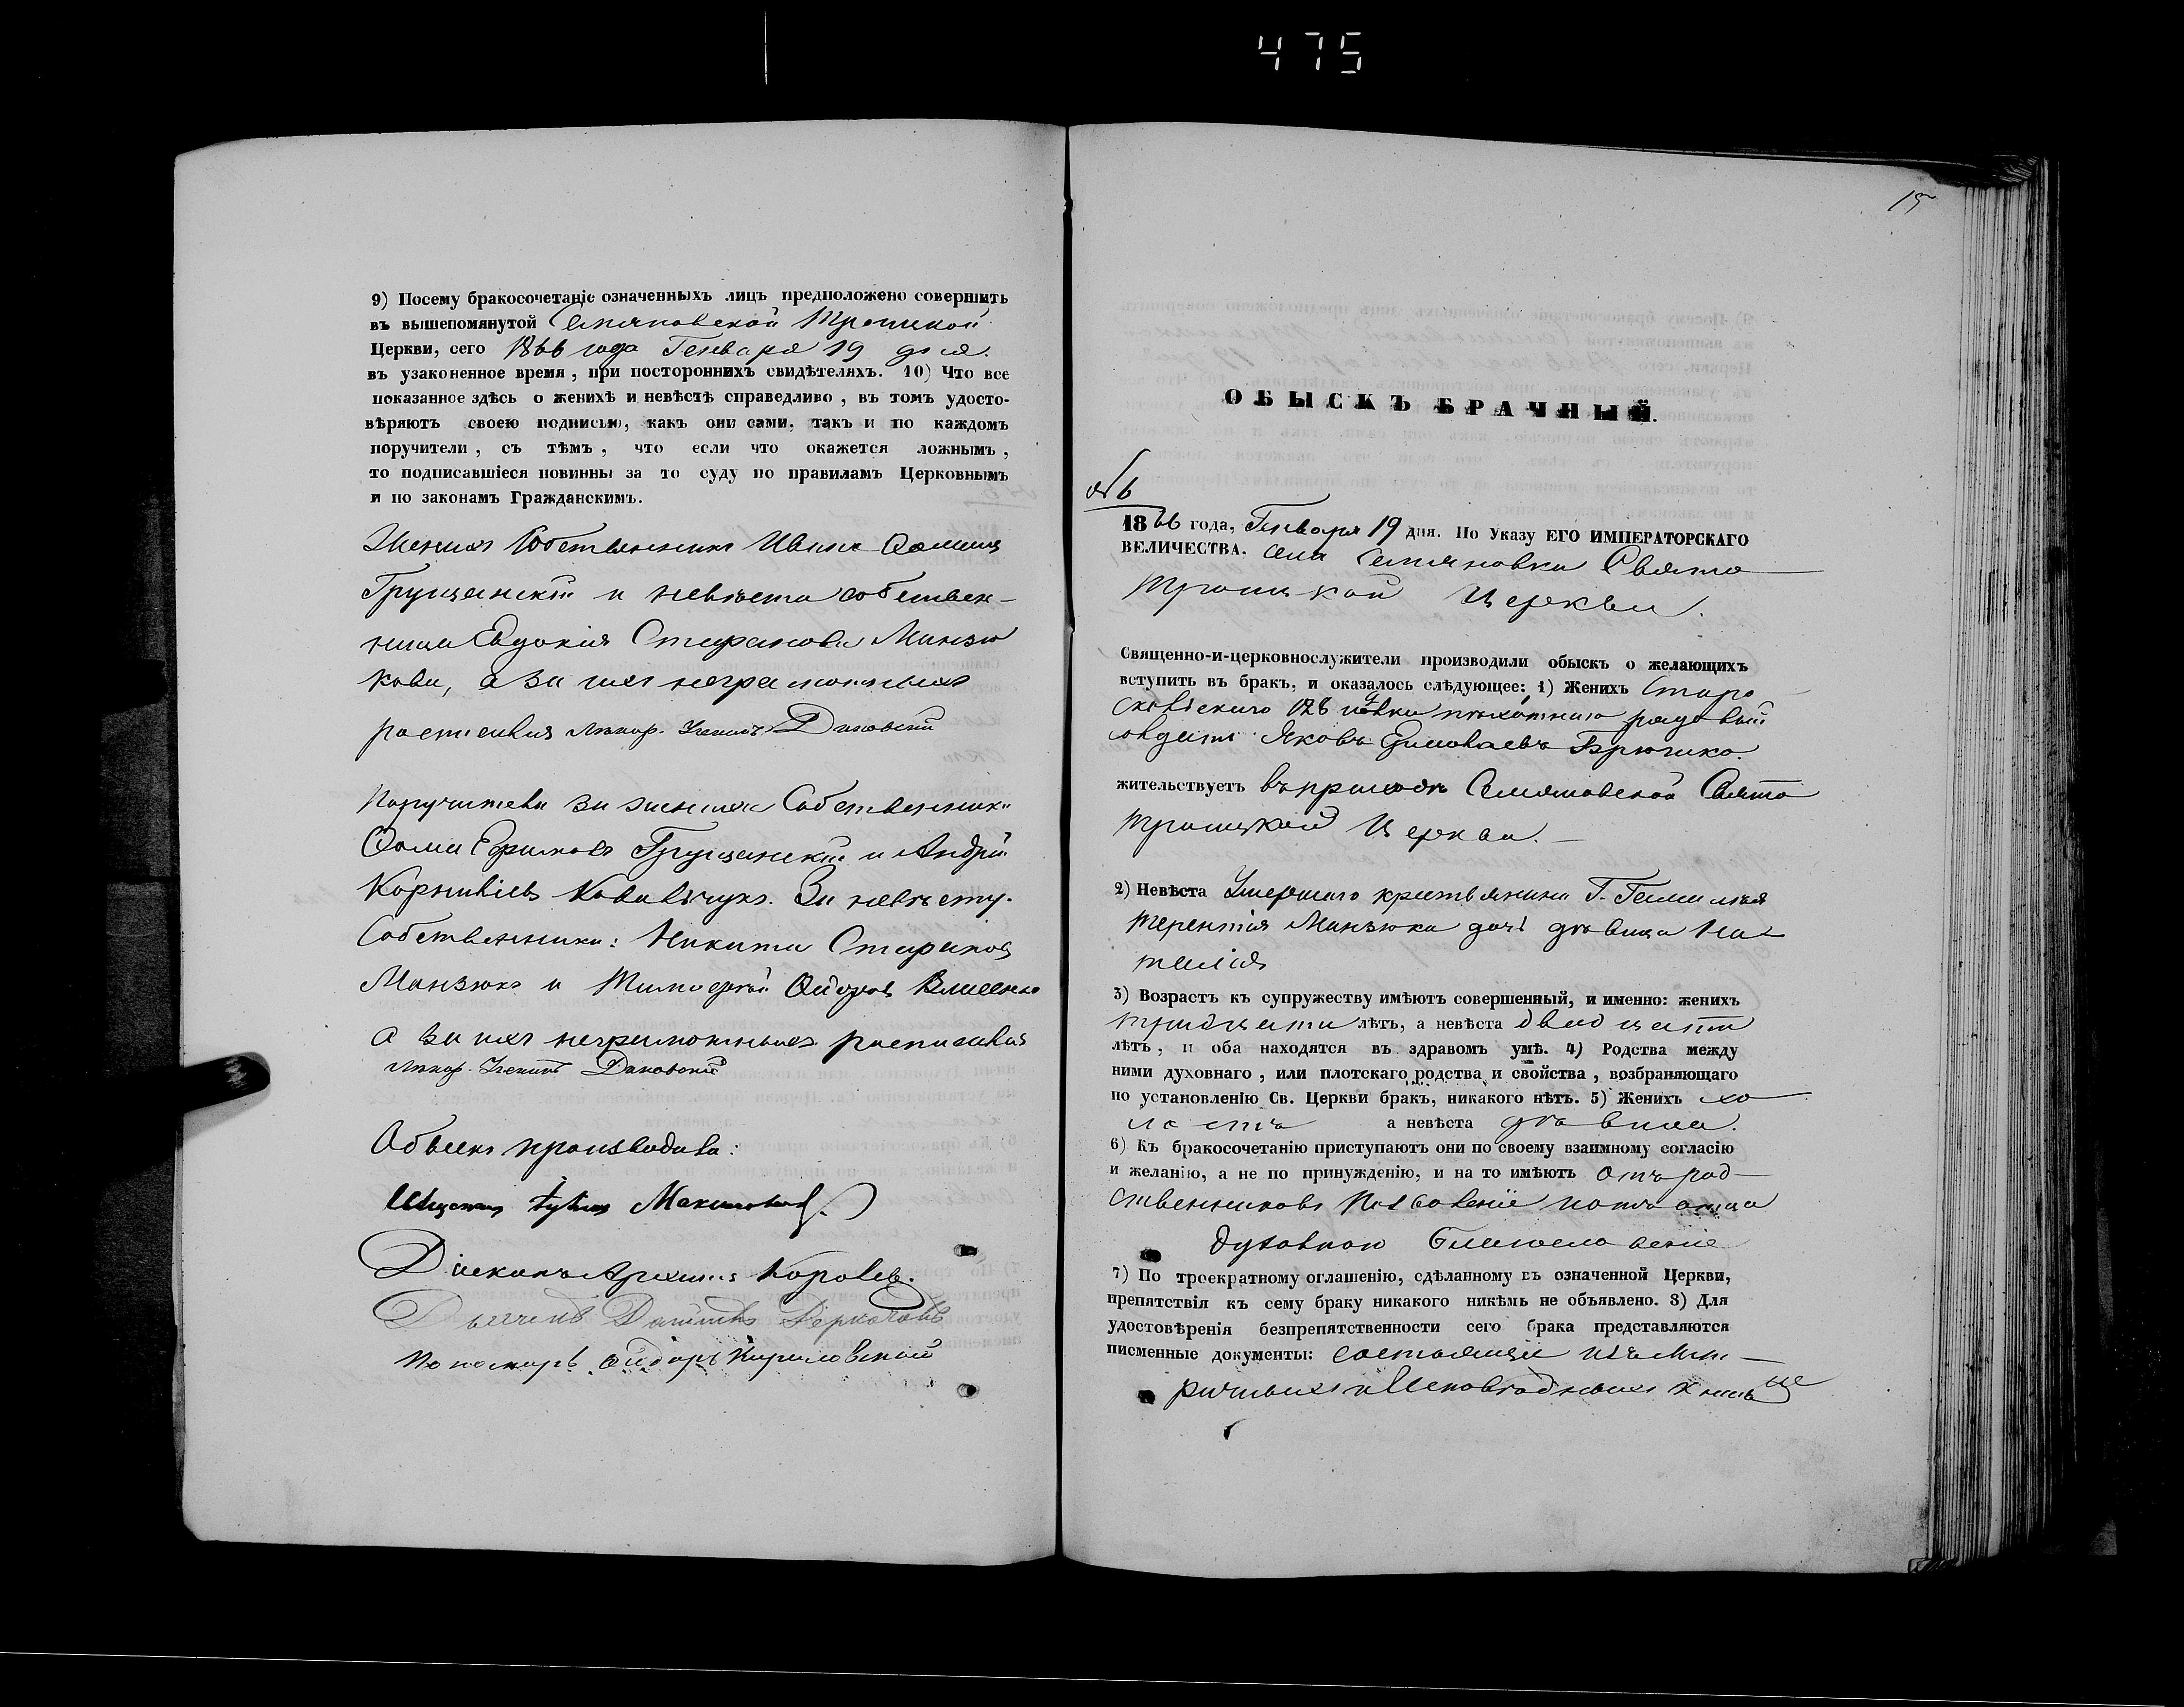 475
9) Посему бракосочетаніе означенныхъ лицъ предположено совершить
въ вышепомянутой Семяновской Троицкой
Церкви, сего 1866 года Генваря 19 дня.
въ узаконенное время, при постороннихъ свидѣтеляхъ. 10) Что все
показанное здѣсь о женихѣ и невѣстѣ справедливо, въ томъ удосто-
вѣряютъ своею подписью, какъ они сами, такъ и по каждомъ
поручители, съ тѣмъ, что если что окажется ложнымъ,
то подписавшіеся повинны за то суду по правиламъ Церковнымъ
и по законамъ Гражданскимъ.
Женихъ Собственникъ Иванъ Ѳоминъ
Грущанскій и невѣста собствен-
ница Евдокія Стефанова Манзю
кова, а за ихъ неграмотныхъ
росписався
Поручители за жениха Собственники
Ѳома Ефимовъ Грущанскій и Андрій
Корнивіевъ Ковальчукъ. За невѣсту.
Собственники: Никита Стефановъ
Манзюкъ и Тимофей
а за ихъ неграмотныхъ росписався
Обыскъ производили:
Діаконъ Королевъ.
Пономарь Сидоръ Кириловский
15
ОБЫСКЪ БРАЧНЫЙ.
№ 6
1866 года, Генваря 19 дня. По Указу ЕГО ИМПЕРАТОРСКАГО
ВЕЛИЧЕСТВА. села Семяновки Свято
Троицкой Церкви.
Священно-и-церковнослужители производили обыскъ о желающихъ
вступить въ бракъ, и оказалось слѣдующее: 1) Женихъ Старо
скольскаго 126 полка пѣхотнаго рядовый
солдатъ Яковъ
жительствуетъ въ приходѣ Семяновской Свято
Троицкой Церкви.
2) Невѣста Умершаго крестьянина Г.
Терентія Манзюка дочь дѣвица На-
талія
3) Возрастъ къ супружеству имѣютъ совершенный, и именно: женихъ
тридцати лѣтъ, а невѣста двадцати
лѣтъ, и оба находятся въ здравомъ умѣ. 4) Родства между
ними духовнаго, или плотскаго родства и свойства, возбраняющаго
по установленію Св. Церкви бракъ, никакого нѣтъ. 5) Женихъ хо
лостъ а невѣста дѣвица.
6) Къ бракосочетанію приступаютъ они по своему взаимному согласію
и желанію, а не по принужденію, и на то имѣютъ отъ род-
ственниковъ позволеніе и отъ отца
духовнаго благословеніе
7) По троекратному оглашенію, сдѣланному въ означенной Церкви,
препятствія къ сему браку никакого никѣмъ не объявлено. 8) Для
удостовѣренія безпрепятственности сего брака представляются
писменные документы: состоящіе изъ Мет-
ричныхъ и Исповѣдныхъ книгъ